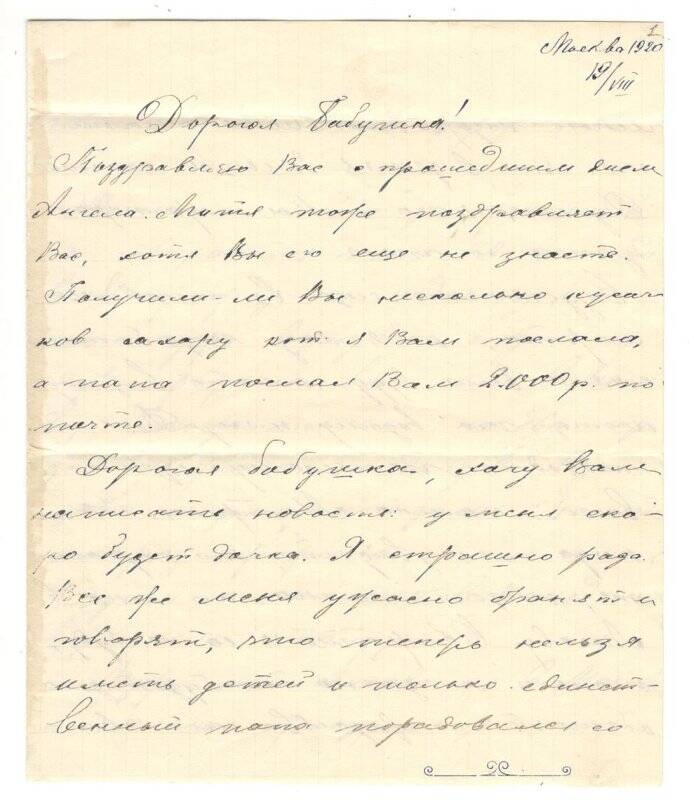 1
Москва 1920
19/VIII
Дорогая Бабушка!
Поздравляю Вас с прошедшим днем
Ангела. Митя тоже поздравляет
Вас, хотя Вы его еще не знаете.
Получили-ли Вы несколько кусоч-
ков сахару кот. я Вам послала,
а папа послал Вам 2.000 р. по
почте.
Дорогая бабушка, хочу Вам
написать новости: у меня ско-
ро будет дочка. Я страшно рада.
Все же меня ужасно бранят и
говорят, что теперь нельзя
иметь детей и только единст-
венный папа порадовался со